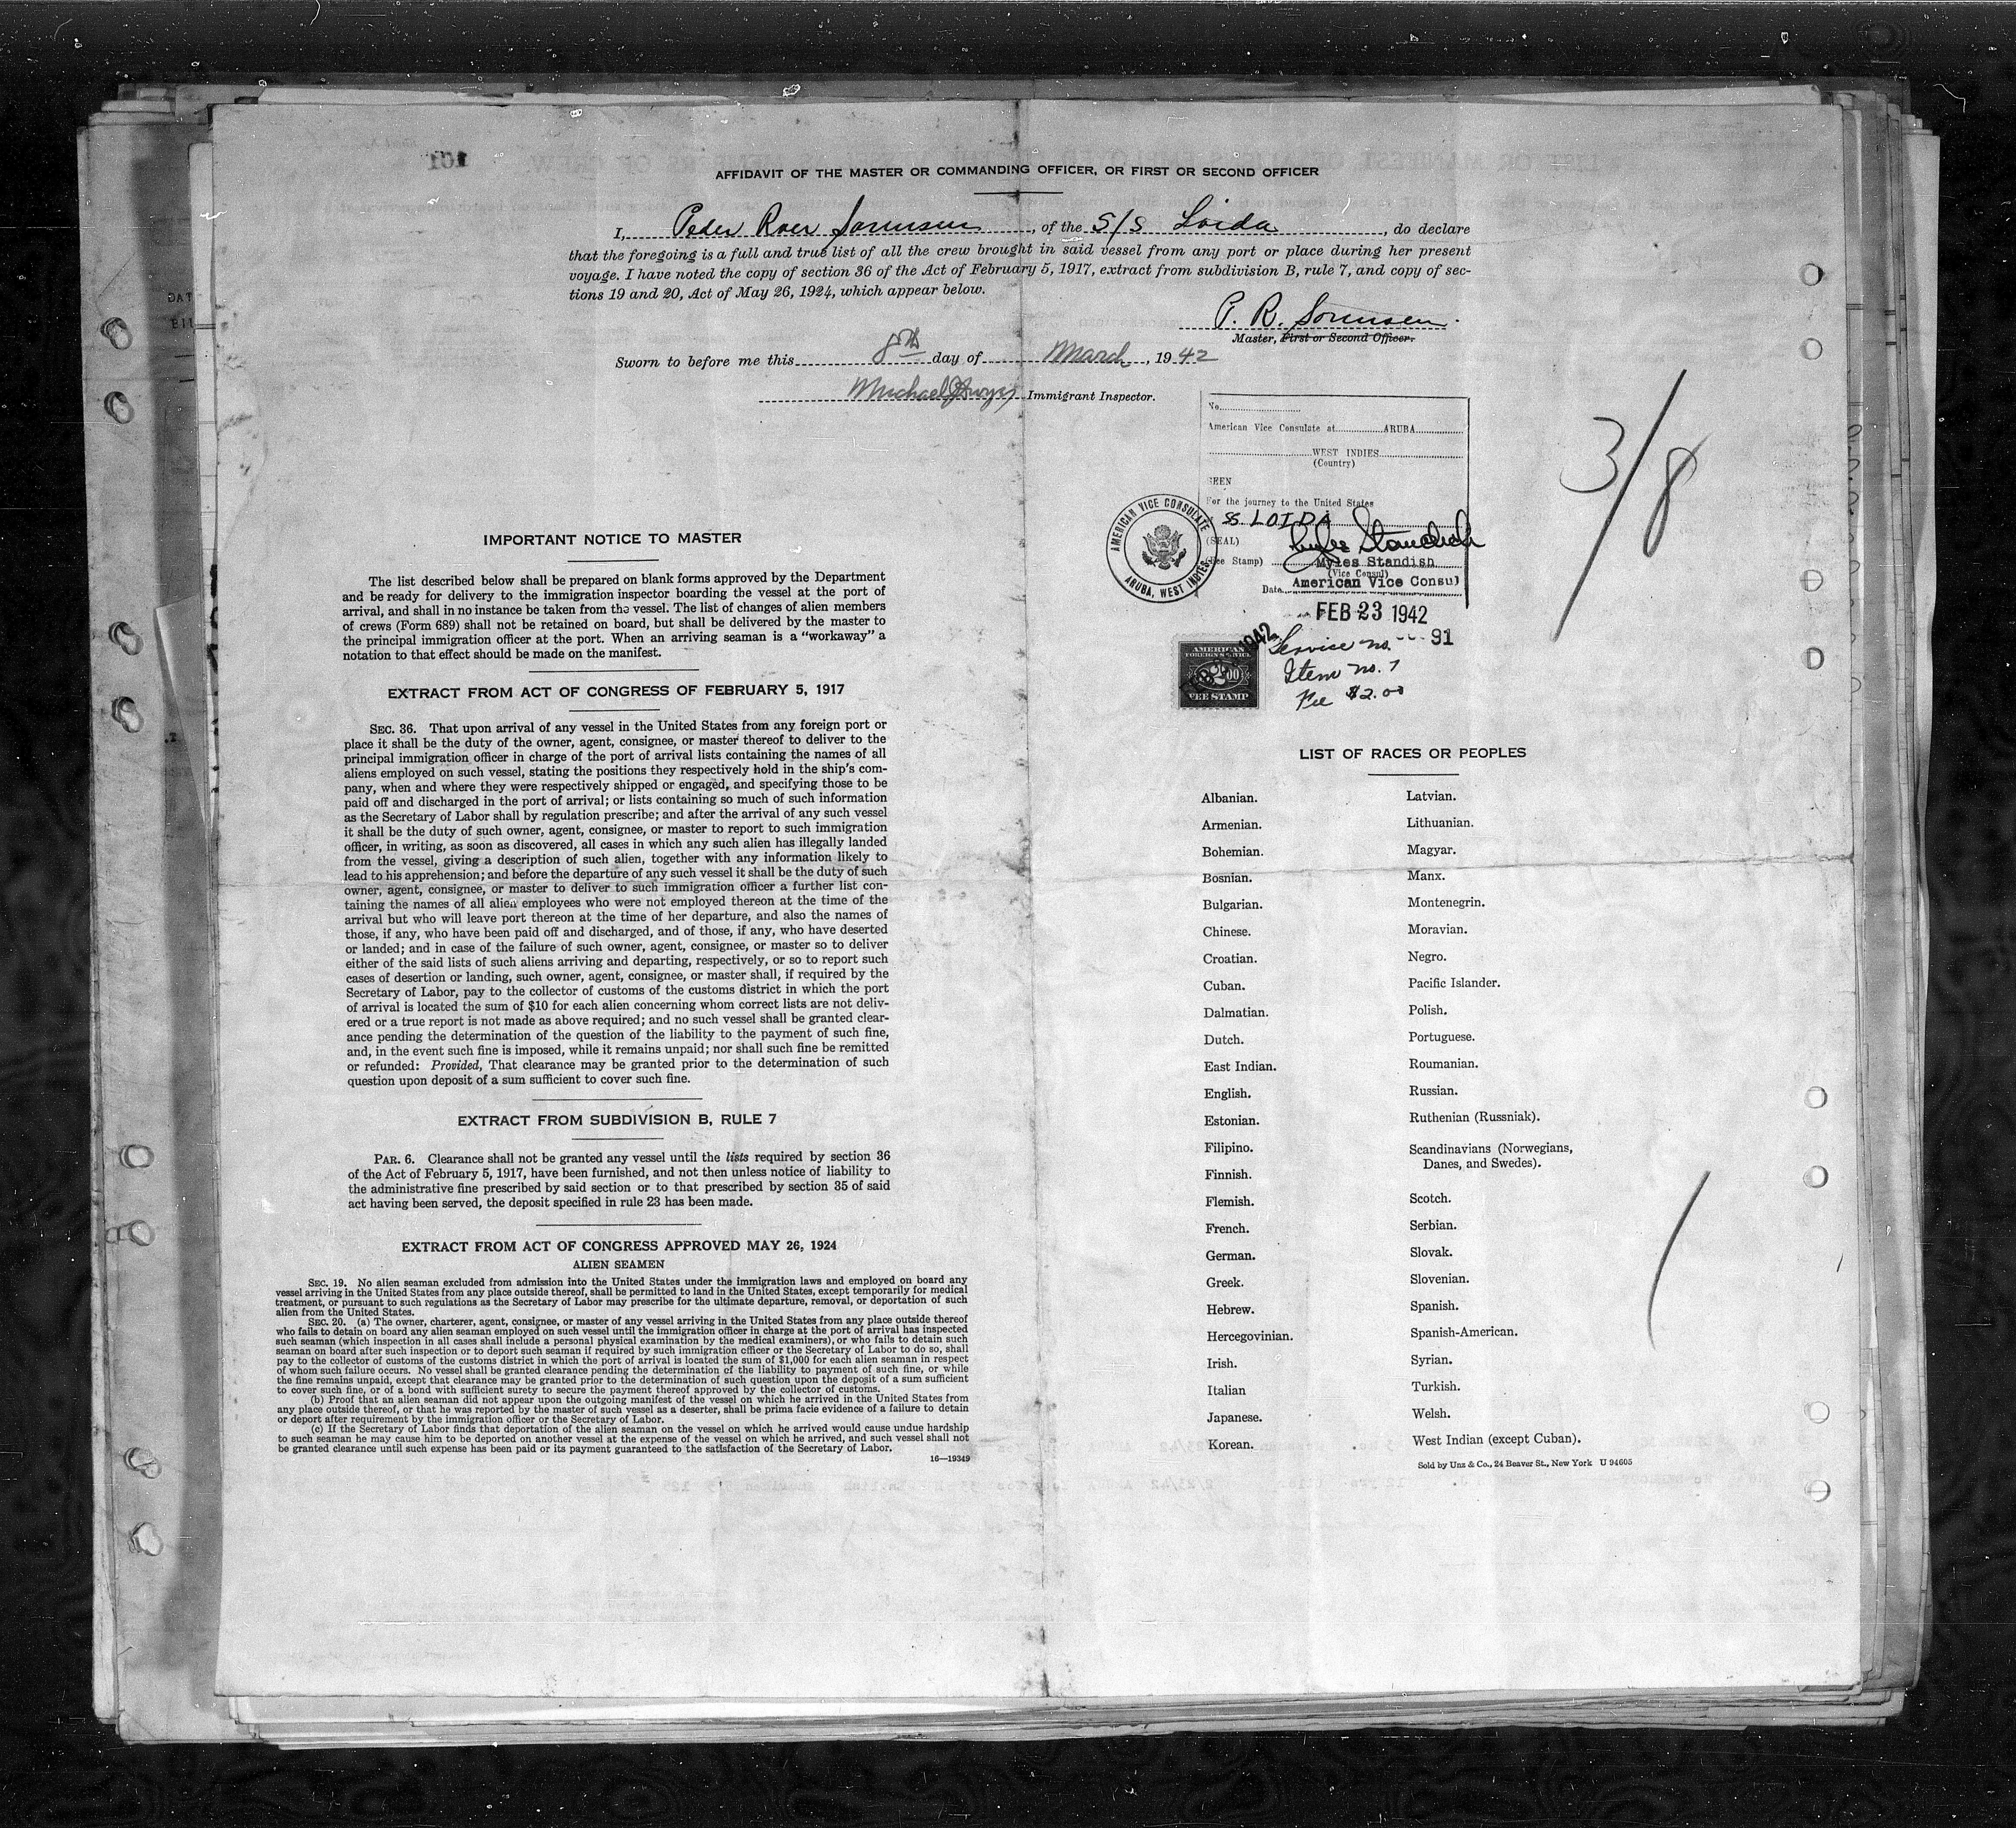 AFFIDAVIT OF THE MASTER OR COMMANDING OFFICER, OR FIRST OR SECOND OFFICER
I, Peder Roer Sorensen, of the S/S Loida, do declare
that the foregoing is a full and true list of all the crew brought in said vessel from any port or place during her present
voyage. I have noted the copy of section 36 of the Act of February 5, 1917, extract from subdivision B, rule 7, and copy of sec-
tions 19 and 20, Act of May 26, 1924, which appear below.
P. R. Sorensen.
Master, First or Second Officer.
Sworn to before me this 8th day of March, 1942
Michael Immigrant Inspector.
No.
American Vice Consulate at ARUBA
WEST INDIES
(Country)
SEEN
For the journey to the United States
SS. LOIDA
(SEAL)
(Fee Stamp) Myles Standish
(Vice Consul)
American Vice Consul
Date
FEB 23 1942
AMERICAN VICE CONSULATE
ARUBA, WEST INDIES
Service no. 91
Item no. 7
Fee $2.00
1942
AMERICAN
FOREIGN SERVICE
2.00
FEE STAMP
3/8
IMPORTANT NOTICE TO MASTER
The list described below shall be prepared on blank forms approved by the Department
and be ready for delivery to the immigration inspector boarding the vessel at the port of
arrival, and shall in no instance be taken from the vessel. The list of changes of alien members
of crews (Form 689) shall not be retained on board, but shall be delivered by the master to
the principal immigration officer at the port. When an arriving seaman is a “workaway” a
notation to that effect should be made on the manifest.
EXTRACT FROM ACT OF CONGRESS OF FEBRUARY 5, 1917
SEC. 36. That upon arrival of any vessel in the United States from any foreign port or
place it shall be the duty of the owner, agent, consignee, or master thereof to deliver to the
principal immigration officer in charge of the port of arrival lists containing the names of all
aliens employed on such vessel, stating the positions they respectively hold in the ship's com-
pany, when and where they were respectively shipped or engaged, and specifying those to be
paid off and discharged in the port of arrival; or lists containing so much of such information
as the Secretary of Labor shall by regulation prescribe; and after the arrival of any such vessel
it shall be the duty of such owner, agent, consignee, or master to report to such immigration
officer, in writing, as soon as discovered, all cases in which any such alien has illegally landed
from the vessel, giving a description of such alien, together with any information likely to
lead to his apprehension; and before the departure of any such vessel it shall be the duty of such
owner, agent, consignee, or master to deliver to such immigration officer a further list con-
taining the names of all alien employees who were not employed thereon at the time of the
arrival but who will leave port thereon at the time of her departure, and also the names of
those, if any, who have been paid off and discharged, and of those, if any, who have deserted
or landed; and in case of the failure of such owner, agent, consignee, or master so to deliver
either of the said lists of such aliens arriving and departing, respectively, or so to report such
cases of desertion or landing, such owner, agent, consignee, or master shall, if required by the
Secretary of Labor, pay to the collector of customs of the customs district in which the port
of arrival is located the sum of $10 for each alien concerning whom correct lists are not deliv-
ered or a true report is not made as above required; and no such vessel shall be granted clear-
ance pending the determination of the question of the liability to the payment of such fine,
and, in the event such fine is imposed, while it remains unpaid; nor shall such fine be remitted
or refunded: Provided, That clearance may be granted prior to the determination of such
question upon deposit of a sum sufficient to cover such fine.
EXTRACT FROM SUBDIVISION B, RULE 7
PAR. 6. Clearance shall not be granted any vessel until the lists required by section 36
of the Act of February 5, 1917, have been furnished, and not then unless notice of liability to
the administrative fine prescribed by said section or to that prescribed by section 35 of said
act having been served, the deposit specified in rule 23 has been made.
EXTRACT FROM ACT OF CONGRESS APPROVED MAY 26, 1924
ALIEN SEAMEN
SEC. 19. No alien seaman excluded from admission into the United States under the immigration laws and employed on board any
vessel arriving in the United States from any place outside thereof, shall be permitted to land in the United States, except temporarily for medical
treatment, or pursuant to such regulations as the Secretary of Labor may prescribe for the ultimate departure, removal, or deportation of such
alien from the United States.
SEC. 20. (a) The owner, charterer, agent, consignee, or master of any vessel arriving in the United States from any place outside thereof
who fails to detain on board any alien seaman employed on such vessel until the immigration officer in charge at the port of arrival has inspected
such seaman (which inspection in all cases shall include a personal physical examination by the medical examiners), or who fails to detain such
seaman on board after such inspection or to deport such seaman if required by such immigration officer or the Secretary of Labor to do so, shall
pay to the collector of customs of the customs district in which the port of arrival is located the sum of $1,000 for each alien seaman in respect
of whom such failure occurs. No vessel shall be granted clearance pending the determination of the liability to payment of such fine, or while
the fine remains unpaid, except that clearance may be granted prior to the determination of such question upon the deposit of a sum sufficient
to cover such fine, or of a bond with sufficient surety to secure the payment thereof approved by the collector of customs.
(b) Proof that an alien seaman did not appear upon the outgoing manifest of the vessel on which he arrived in the United States from
any place outside thereof, or that he was reported by the master of such vessel as a deserter, shall be prima facie evidence of a failure to detain
or deport after requirement by the immigration officer or the Secretary of Labor.
(c) If the Secretary of Labor finds that deportation of the alien seaman on the vessel on which he arrived would cause undue hardship
to such seaman he may cause him to be deported on another vessel at the expense of the vessel on which he arrived, and such vessel shall not
be granted clearance until such expense has been paid or its payment guaranteed to the satisfaction of the Secretary of Labor.
16—19349
LIST OF RACES OR PEOPLES
Albanian.
Armenian.
Bohemian.
Bosnian.
Bulgarian.
Chinese.
Croatian.
Cuban.
Dalmatian.
Dutch.
East Indian.
English.
Estonian.
Filipino.
Finnish.
Flemish.
French.
German.
Greek.
Hebrew.
Hercegovinian.
Irish.
Italian
Japanese.
Korean.
Latvian.
Lithuanian.
Magyar.
Manx.
Montenegrin.
Moravian.
Negro.
Pacific Islander.
Polish.
Portuguese.
Roumanian.
Russian.
Ruthenian (Russniak).
Scandinavians (Norwegians,
Danes, and Swedes).
Scotch.
Serbian.
Slovak.
Slovenian.
Spanish.
Spanish-American.
Syrian.
Turkish.
Welsh.
West Indian (except Cuban).
Sold by Unz & Co., 24 Beaver St., New York U 94605